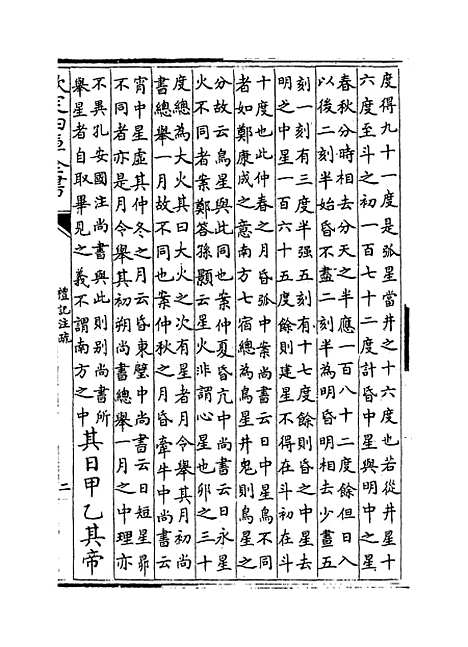 度得九十一度是弧星當井之十六度也若從井星十
六度至斗之初一百七十二度計昏中星與明中之星
春秋分時相去分天之半應一百八十二度餘但日入
以後二刻半始昏不盡二刻半為明昏明相去少晝五
刻一刻有三度半强五刻有十七度餘則昏之中星去
明之中星一百六十五度餘則建星不得在斗初在斗
十度也此仲春之月昏弧中案尚書云日中星鳥不同
者如鄭康成之意南方七宿總為鳥星井鬼則鳥星之
分故云鳥星與此同也案仲夏昏亢中尚書云日永星
火不同者案鄭答孫顥云星火非謂心星也卯之三十
度總為大火其曰大火之次有星者月令舉其月初尚
書總舉一月故不同也案仲秋之月昏牽牛中尚書云
宵中星虛其仲冬之月云昏東壁中尚書云日短星昴
不同者亦是月令舉其初朔尚書總舉一月之中理亦
不異孔安國注尚書與此則别尚書所
舉星者自取畢見之義不謂南方之中
其日甲乙其帝
欽定四庫全書
禮記注疏
二